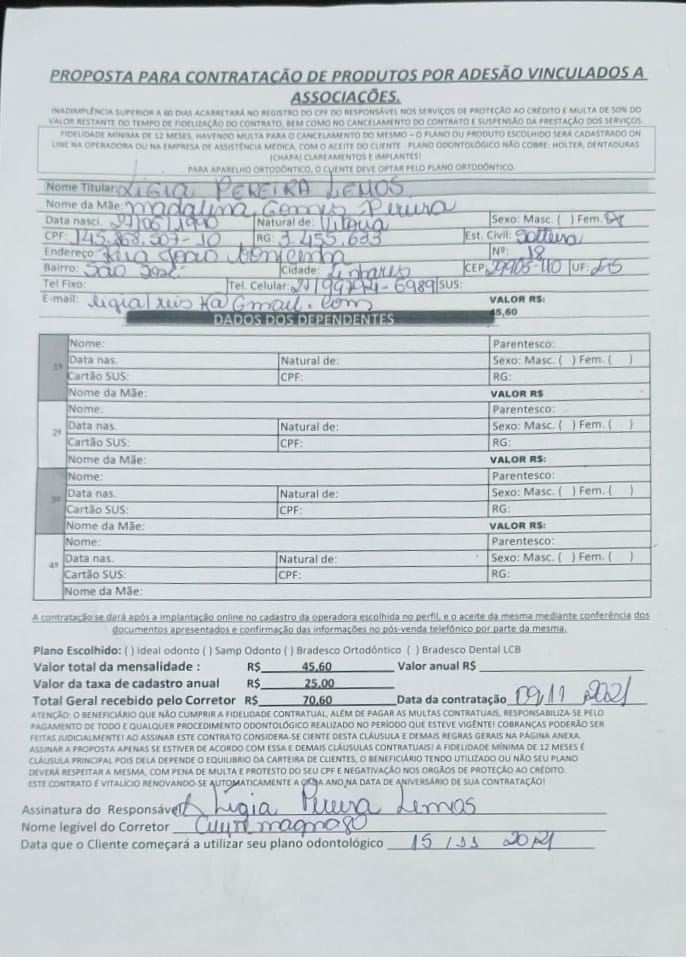 PROPOSTA PARA CONTRATAÇÃO DE PRODUTOS POR ADESÃO VINCULADOS A
ASSOCIAÇÕES.
INADIMPLÊNCIA SUPERIOR A 60 DIAS ACARRETARÁ NO REGISTRO DO CPF DO RESPONSÁVEL NOS SERVIÇOS DE PROTEÇÃO AO CRÉDITO E MULTA DE 50% DO
VALOR RESTANTE DO TEMPO DE FIDELIZAÇÃO DO CONTRATO, BEM COMO NO CANCELAMENTO DO CONTRATO E SUSPENSÃO DA PRESTAÇÃO DOS SERVIÇOS.
FIDELIDADE MÍNIMA DE 12 MESES, HAVENDO MULTA PARA O CANCELAMENTO DO MESMO – O PLANO OU PRODUTO ESCOLHIDO SERÁ CADASTRADO ON
LINE NA OPERADORA OU NA EMPRESA DE ASSISTÊNCIA MÉDICA, COM O ACEITE DO CLIENTE - PLANO ODONTOLÓGICO NÃO COBRE: HOLTER, DENTADURAS
(CHAPA) CLAREAMENTOS E IMPLANTES!
PARA APARELHO ORTODÔNTICO, O CLIENTE DEVE OPTAR PELO PLANO ORTODÔNTICO.
Nome Titular: LIGIA PEREIRA LEMOS
Nome da Mãe: Madalina Gomes Pereira
Data nasci. 27/06/1990 Natural de: Vitoria Sexo: Masc. ( ) Fem.
CPF: 145.868.507-10 RG: 3.455.633 Est. Civil: Solteira
Endereço: Rua João Nº: 18
Bairro: São José Cidade: Linhares CEP 29905-110 UF:
Tel Fixo: Tel. Celular: 27/99794-6989 SUS:
E-mail: @Gmail.com VALOR R$:
45,60
DADOS DOS DEPENDENTES
1º Nome: Parentesco:
Data nas. Natural de: Sexo: Masc. ( ) Fem. ( )
Cartão SUS: CPF: RG:
Nome da Mãe: VALOR R$
2º Nome: Parentesco:
Data nas. Natural de: Sexo: Masc. ( ) Fem. ( )
Cartão SUS: CPF: RG:
Nome da Mãe: VALOR R$:
3º Nome: Parentesco:
Data nas. Natural de: Sexo: Masc. ( ) Fem. ( )
Cartão SUS: CPF: RG:
Nome da Mãe: VALOR R$:
4º Nome: Parentesco:
Data nas. Natural de: Sexo: Masc. ( ) Fem. ( )
Cartão SUS: CPF: RG:
Nome da Mãe:
A contratação se dará após a implantação online no cadastro da operadora escolhida no perfil, e o aceite da mesma mediante conferência dos
documentos apresentados e confirmação das informações no pós-venda telefônico por parte da mesma.
Plano Escolhido: ( ) Ideal odonto ( ) Samp Odonto ( ) Bradesco Ortodôntico ( ) Bradesco Dental LCB
Valor total da mensalidade : R$ 45,60 Valor anual R$
Valor da taxa de cadastro anual R$ 25,00
Total Geral recebido pelo Corretor R$ 70,60 Data da contratação 09/11 2021
ATENÇÃO: O BENEFICIÁRIO QUE NÃO CUMPRIR A FIDELIDADE CONTRATUAL, ALÉM DE PAGAR AS MULTAS CONTRATUAIS, RESPONSABILIZA-SE PELO
PAGAMENTO DE TODO E QUALQUER PROCEDIMENTO ODONTOLÓGICO REALIZADO NO PERÍODO QUE ESTEVE VIGÊNTE! COBRANÇAS PODERÃO SER
FEITAS JUDICIALMENTE! AO ASSINAR ESTE CONTRATO CONSIDERA-SE CIENTE DESTA CLÁUSULA E DEMAIS REGRAS GERAIS NA PÁGINA ANEXA.
ASSINAR A PROPOSTA APENAS SE ESTIVER DE ACORDO COM ESSA E DEMAIS CLÁUSULAS CONTRATUAIS! A FIDELIDADE MÍNIMA DE 12 MESES É
CLÁUSULA PRINCIPAL POIS DELA DEPENDE O EQUILIBRIO DA CARTEIRA DE CLIENTES, O BENEFICIÁRIO TENDO UTILIZADO OU NÃO SEU PLANO
DEVERÁ RESPEITAR A MESMA, COM PENA DE MULTA E PROTESTO DO SEU CPF E NEGATIVAÇÃO NOS ORGÃOS DE PROTEÇÃO AO CRÉDITO.
ESTE CONTRATO É VITALÍCIO RENOVANDO-SE AUTOMATICAMENTE A CADA ANO NA DATA DE ANIVERSÁRIO DE SUA CONTRATAÇÃO!
Assinatura do Responsável Ligia Pereira Lemos
Nome legível do Corretor
Data que o Cliente começará a utilizar seu plano odontológico 15/11 2021